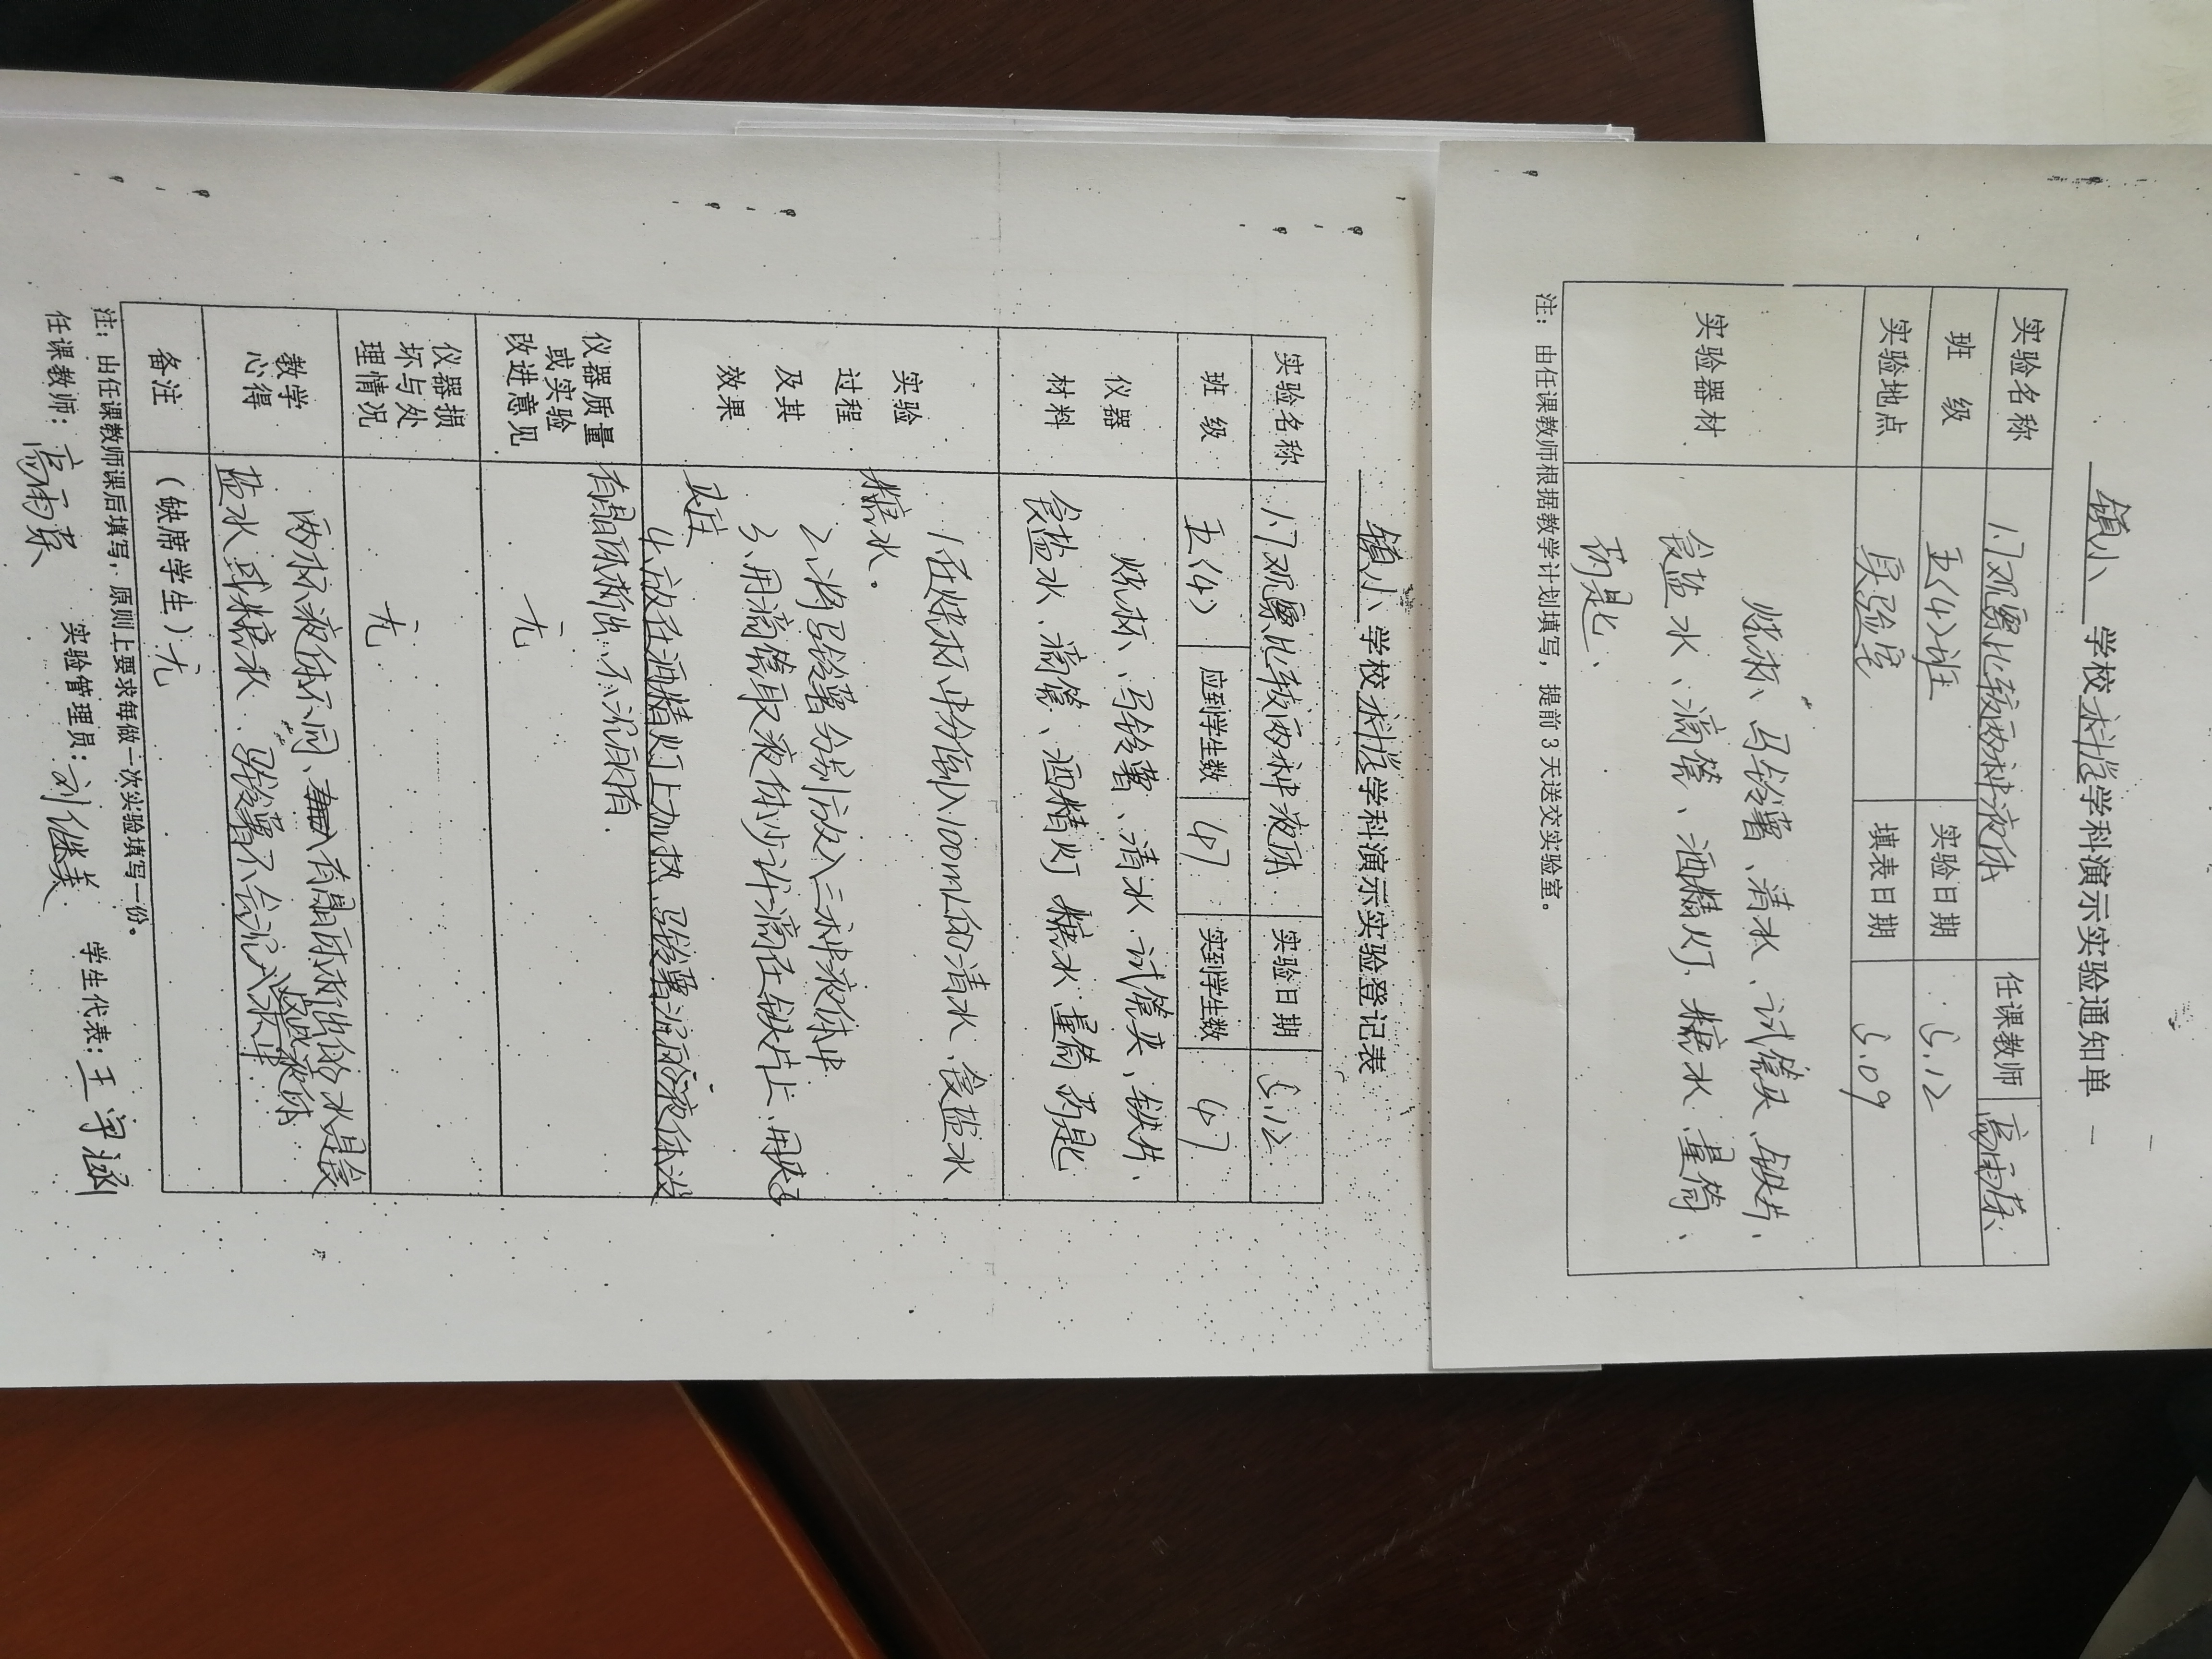 镇小 学校科学学科演示实验通知单
实验名称 17观察比较两种液体 任课教师 高雨荪
班 级 五(4)班 实验日期 5.12
实验地点 实验室 填表日期 5.09
实验器材
烧杯、马铃薯、清水、试管夹、铁片、
食盐水、滴管、酒精灯、糖水、量筒、
药匙、
注：由任课教师根据教学计划填写，提前3天送交实验室。
镇小 学校科学学科演示实验登记表
实验名称 17观察比较两种液体 实验日期 5.12
班 级 五(4) 应到学生数 47 实到学生数 47
仪器材料
烧杯、马铃薯、清水、试管夹、铁片、
食盐水、滴管、酒精灯 糖水 量筒 药匙
实验过程及其效果
1在烧杯中分倒入100mL的清水、食盐水
糖水。
2、将马铃薯分别放入三种液体中
3、用滴管取液体少许滴在铁片上、用夹子
夹住
4、放在酒精灯上加热、马铃薯沉的液体没
有晶体析出、不沉的有.
仪器质量或实验改进意见
无
仪器损坏与处理情况
无
教学心得
两杯液体不同、有晶体析出的水是食
盐水或糖水、马铃薯不会沉入液体
备注 (缺席学生) 无
注：由任课教师课后填写，原则上要求每做一次实验填写一份。
任课教师：高雨荪 实验管理员：刘继美 学生代表：王宇涵